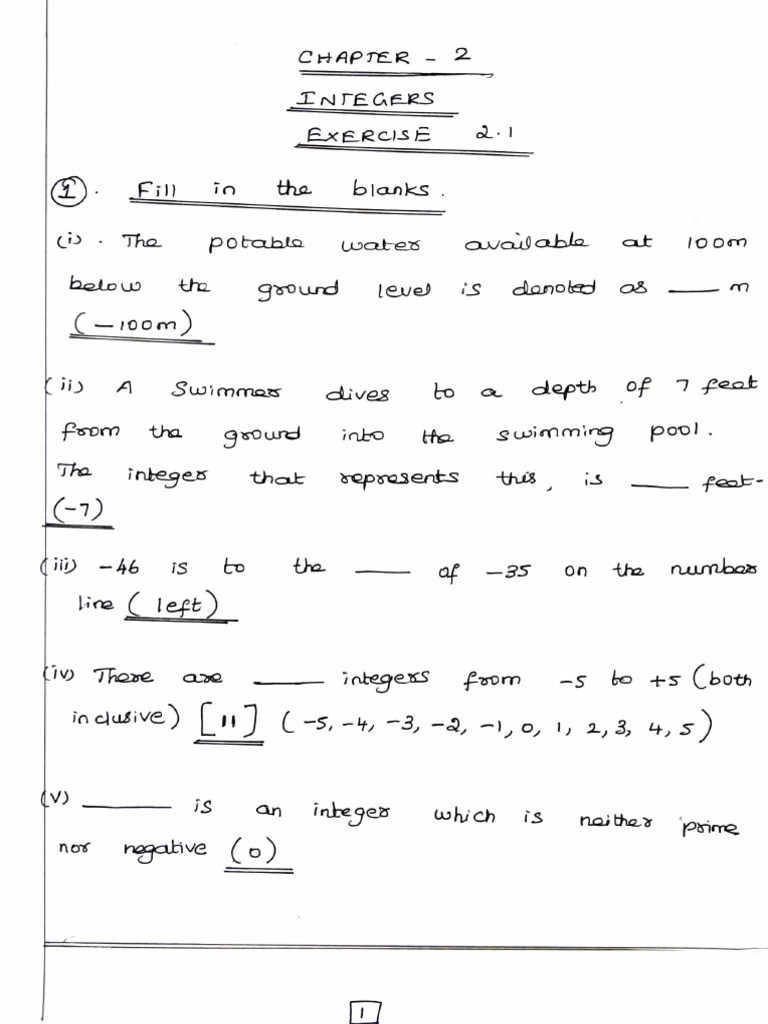 CHAPTER - 2
INTEGERS
EXERCISE 2.1
1. Fill in the blanks.
(i). The potable water available at 100m
below the ground level is denoted as ___ m
(-100m)
(ii) A Swimmer dives to a depth of 7 feet
from the ground into the swimming pool.
The integer that represents this, is ___ feet-
(-7)
(iii) -46 is to the ___ of -35 on the number
line (left)
(iv) There are ___ integers from -5 to +5 (both
inclusive) [11] (-5, -4, -3, -2, -1, 0, 1, 2, 3, 4, 5)
(v) ___ is an integer which is neither prime
nor negative (0)
1